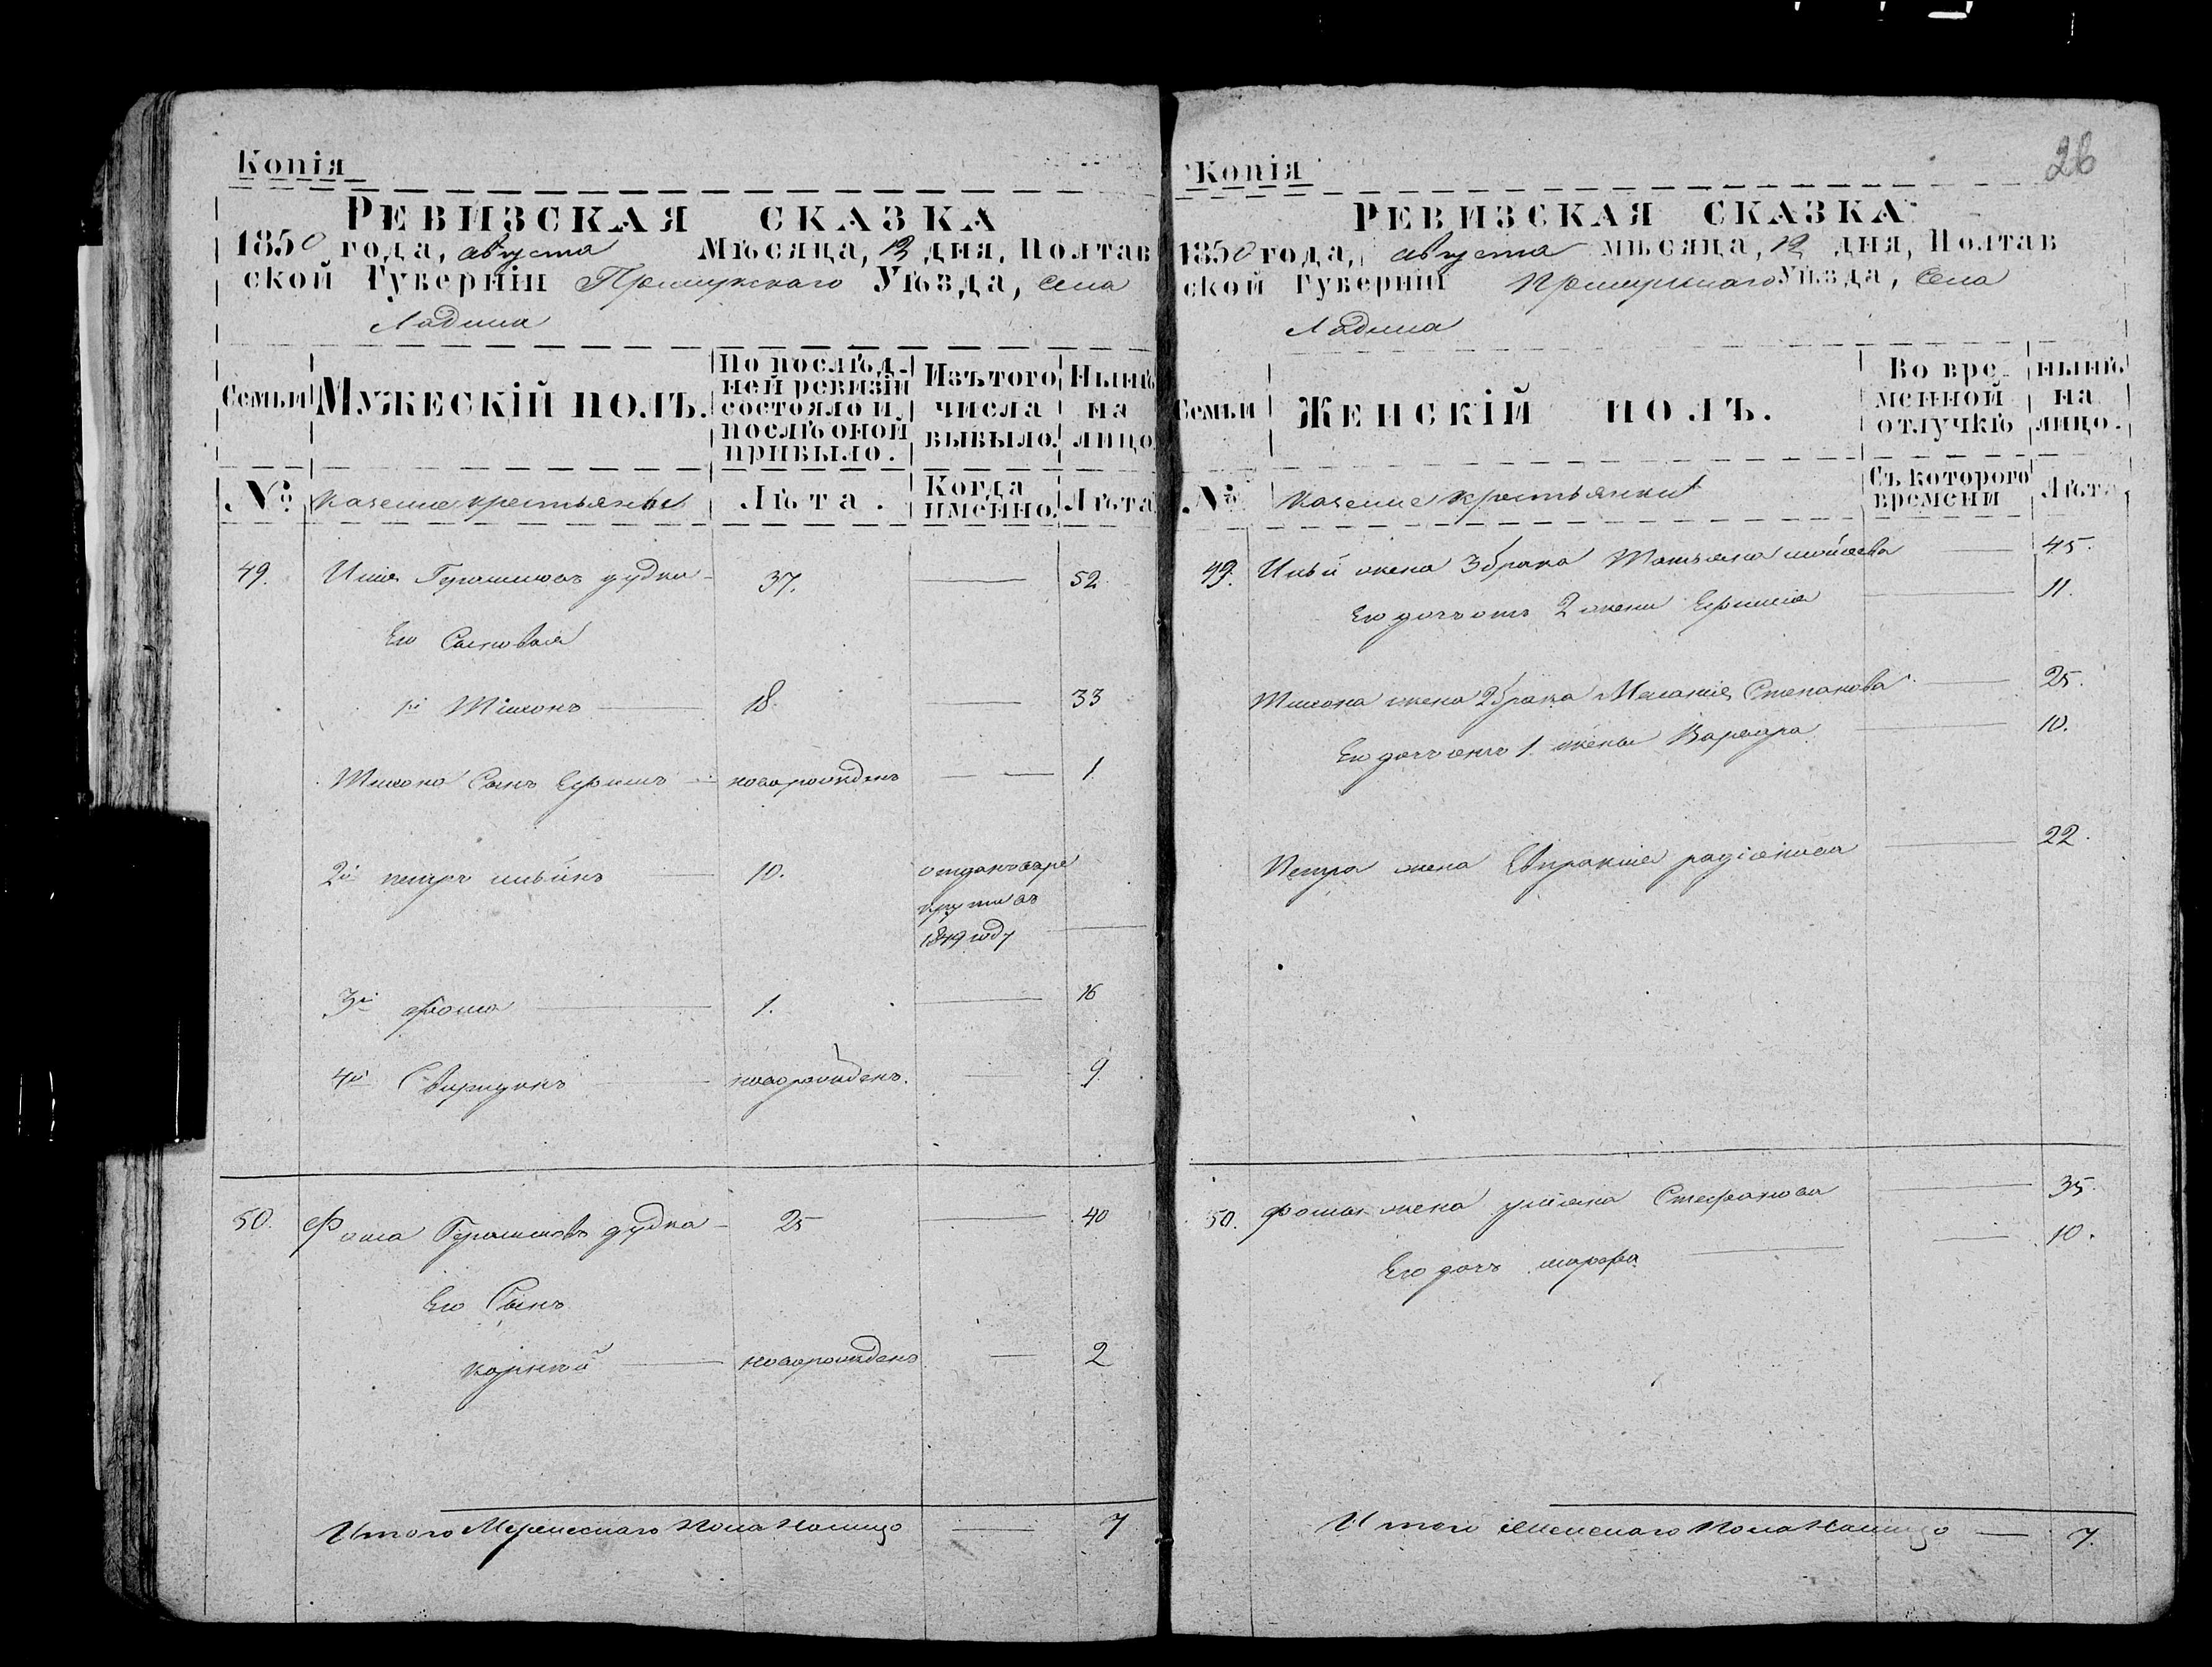 Копія
РЕВИЗСКАЯ СКАЗКА
1850 года, августа Мѣсяца, 12 дня, Полтав
ской Губерніи Прилуцкаго Уѣзда, Села
Ладина
Семьи
МУЖЕСКІЙ ПОЛЪ.
По послѣд-
ней ревизіи
состояло и
послѣ оной
прибыло.
Изъ того
числа
выбыло.
Нынѣ
на
лицо
№
казенные крестьяне
Лѣта.
Когда
именно.
Лѣта
49. Илья Герасимовъ дудка 37. 52
Его Сыновья
1й Тимонъ 18. 33
Тимона Сынъ Ефимъ новорожденъ 1.
2й петръ ильинъ 10. отданъ въ ре
круты въ
1849 году
3й фома 1. 16
4й Свиридонъ новорожденъ. 9.
50. Фома Герасимовъ дудка 25 40
Его Сынъ
корнѣй новорожденъ 2
Итого Мужескаго Пола Налицо 7
26
Копія
РЕВИЗСКАЯ СКАЗКА
1850 года, августа мѣсяца, 12 дня, Полтав
ской Губерніи Прилуцкаго Уѣзда, Села
Ладина
Семьи
ЖЕНСКІЙ ПОЛЪ.
Во вре-
менной
отлучкѣ
нынѣ
на
лицо.
№
казенные крестьянки
Съ котораго
времени
Лѣта
49. Ильи жена 3 брака Татьяна 45.
Его дочь отъ 2 жены Ефимія 11.
Тимона жена 2 брака Меланія Степанова 25.
Его дочь отъ 1. жены Варвара 10.
Петра жена Евпраксія радіонова 22.
50. Фомы жена уліяна Стефанова 35.
Его дочь марфа 10.
Итого Женскаго Пола Налицо 7.